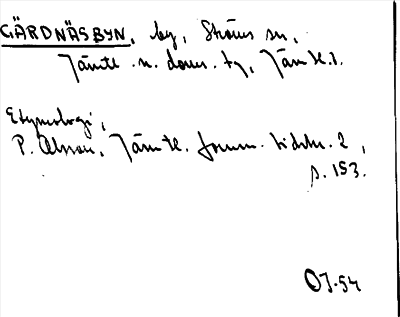 GÄRDNÄSBYN, by, Ströms sn,
Jämtl. n. doms. tg, Jämtl. l.
Etymologi,
P. Olsson, Jämtl. fornm. tidskr. 2,
s. 153.
OJ-54